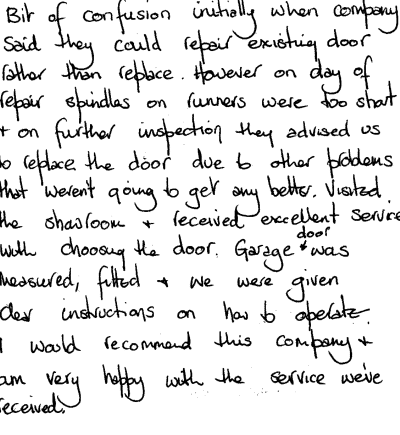 Bit of confusion initially when company
said they could repair existing door
rather than replace. However on day of
repair spindles on runners were too short
+ on further inspection they advised us
to replace the door due to other problems
that weren't going to get any better. Visited
the showroom + received excellent service
with choosing the door. Garage door was
measured, fitted + we were given
clear instructions on how to operate.
I would recommend this company +
am very happy with the service we've
received.